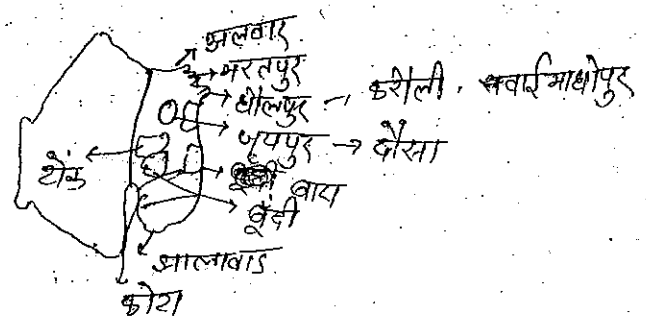 अलवार
भरतपुर
धौलपुर → करौली, सवाईमाधोपुर
जयपुर → दौसा
टोंक
बारा
बूंदी
झालावाड
कोटा